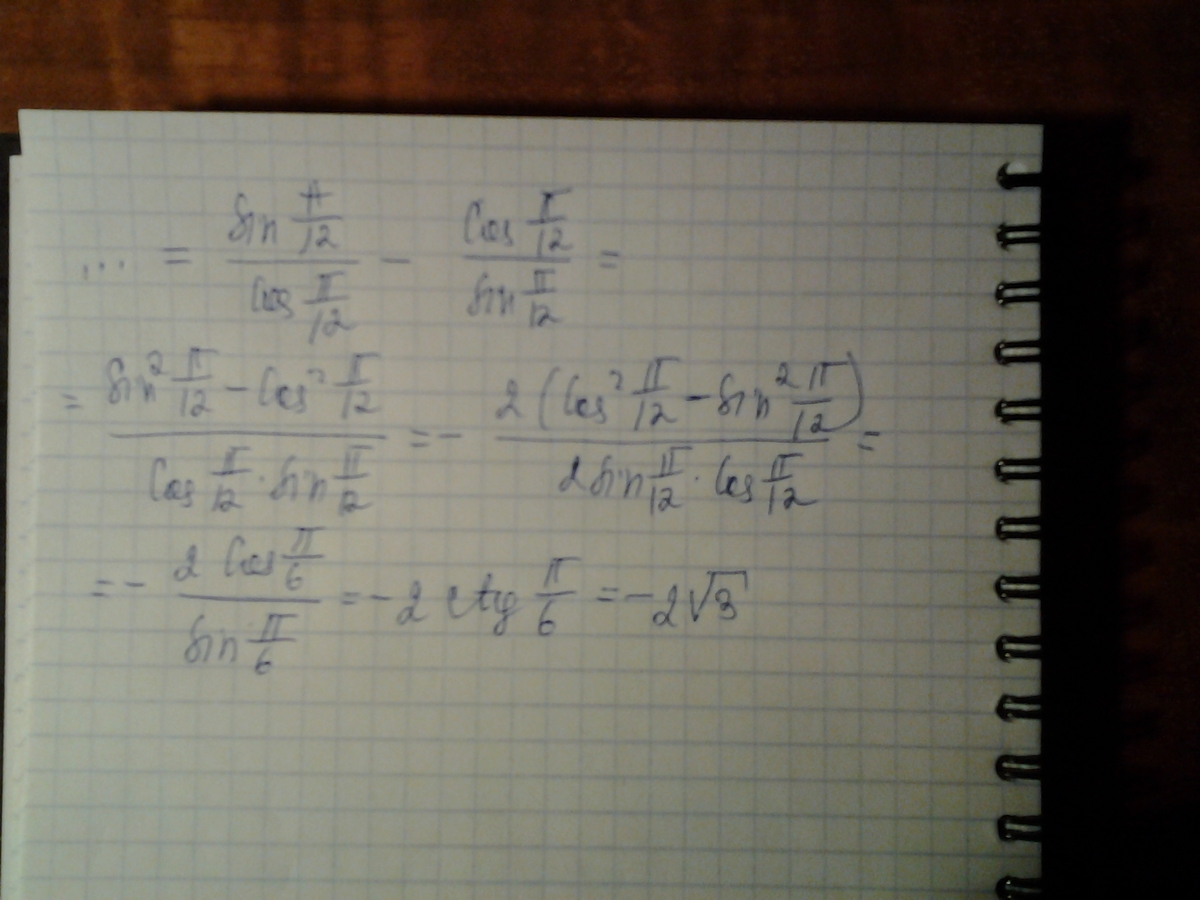 ... = \frac{\sin \frac{π}{12}}{\cos \frac{π}{12}} - \frac{\cos \frac{π}{12}}{\sin \frac{π}{12}} =
= \frac{\sin^2 \frac{π}{12} - \cos^2 \frac{π}{12}}{\cos \frac{π}{12} · \sin \frac{π}{12}} = - \frac{2 (\cos^2 \frac{π}{12} - \sin^2 \frac{π}{12})}{2 \sin \frac{π}{12} · \cos \frac{π}{12}} =
= - \frac{2 \cos \frac{π}{6}}{\sin \frac{π}{6}} = -2 ctg \frac{π}{6} = -2\sqrt{3}